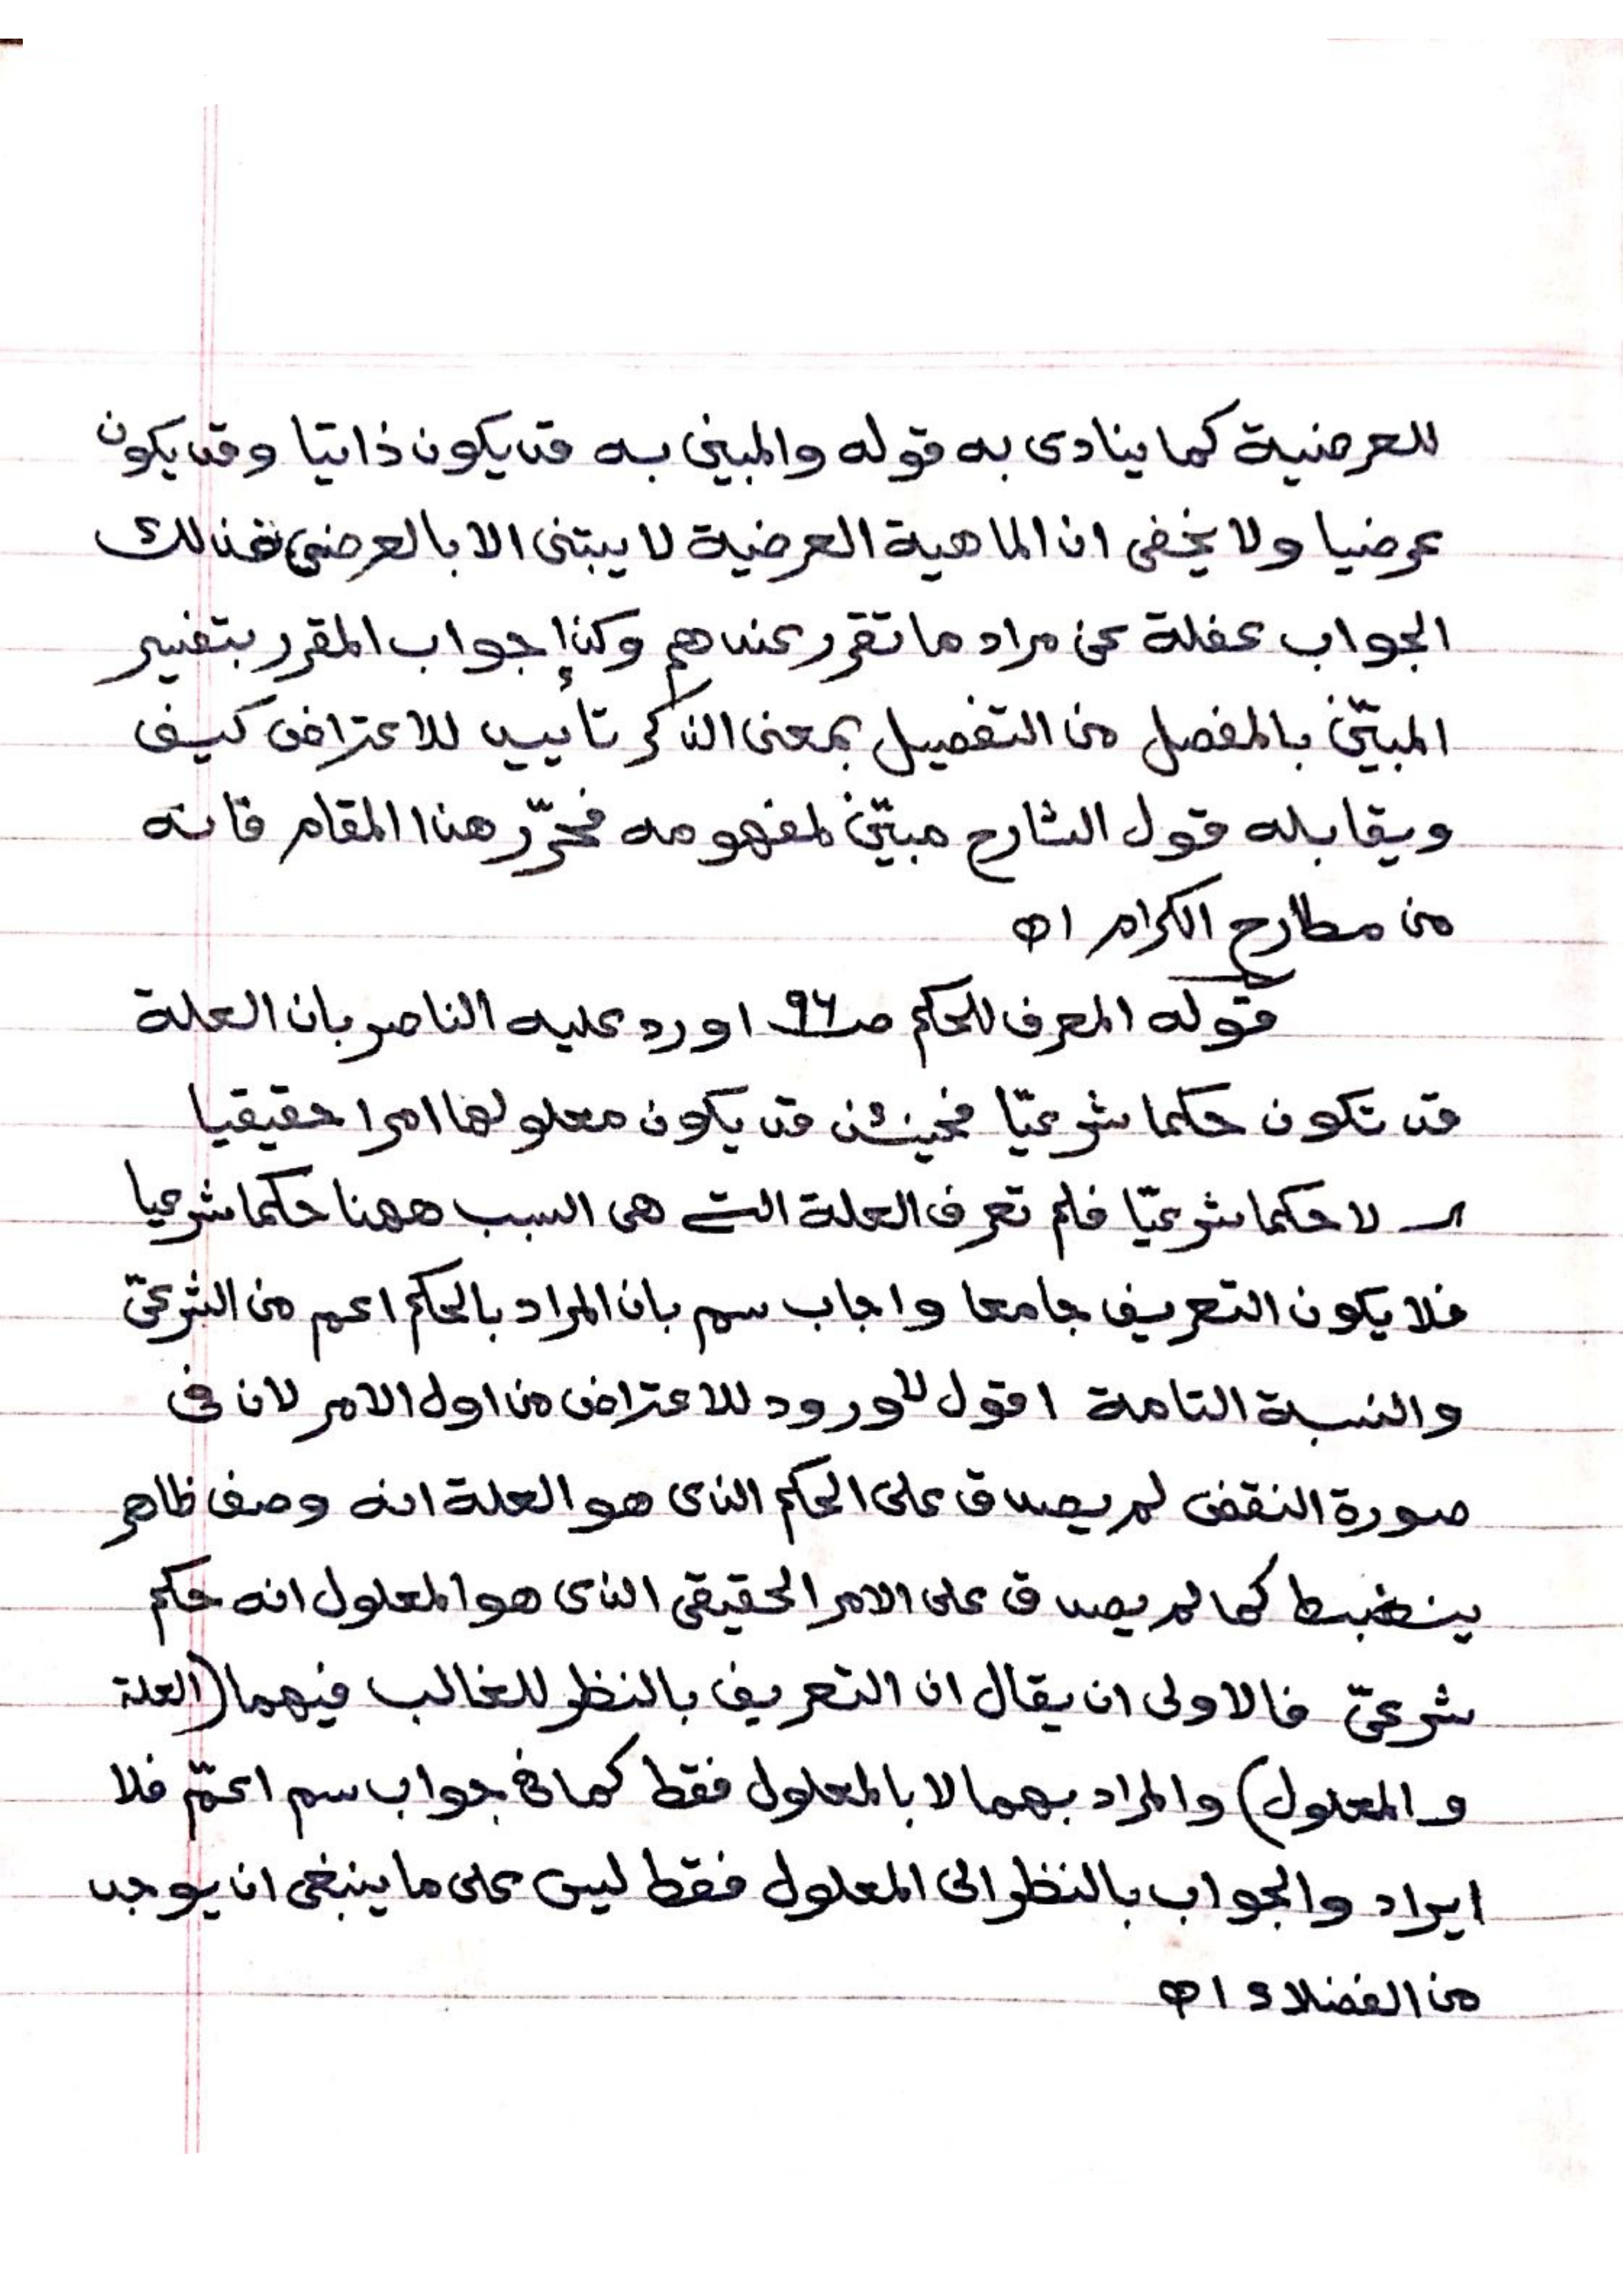 للعرضية كما ينادى به قوله والمبين به قد يكون ذاتيا وقد يكون
عرضيا ولا يخفى ان الماهية العرضية لا يبتنى الا بالعرضى فذلك
الجواب غفلة عن مراد ما تقرر عندهم وكذا جواب المقرر بتفسير
المبيّن بالمفصل من التفصيل بمعنى الذكر تأييد للاعتراض كيف
ويقابله قول الشارح مبيّن لمفهومه فحرّر هذا المقام فانه
من مطارح الكرام اه
قوله المعرف للحكم صـ٩٦ اورد عليه الناصر بان العلة
قد تكون حكما شرعيّا فحينئذ قد يكون معلولها امرا حقيقيا
لا حكما شرعيّا فلم تعرف العلة التى هى السبب ههنا حكما شرعيا
فلا يكون التعريف جامعا واجاب سم بان المراد بالحكم اعم من الشرعىّ
والنسبة التامة اقول لا ورود للاعتراض من اول الامر لان فى
صورة النقض لم يصدق على الحكم الذى هو العلة انه وصف ظاهر
ينضبط كما لم يصدق على الامر الحقيقى الذى هو المعلول انه حكم
شرعىّ فالاولى ان يقال ان التعريف بالنظر للغالب فيهما (العلة
والمعلول) والمراد بهما لا بالمعلول فقط كما فى جواب سم اعمّ فلا
ايراد والجواب بالنظر الى المعلول فقط ليس على ما ينبغى ان يوجد
من الفضلاء اه